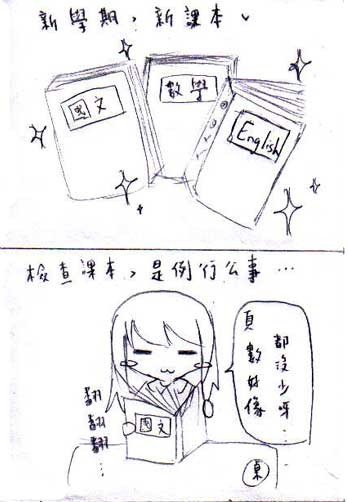 新學期,新課本♥
國文
數學
English
檢查課本,是例行公事…
都沒少呀…
頁數好像
翻翻翻…
國文
桌